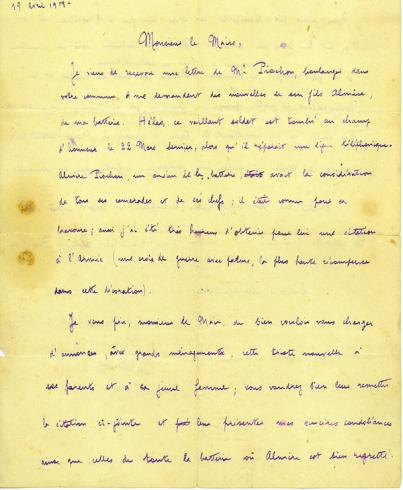 19 Avril 191
Monsieur le Maire,
Je viens de recevoir une lettre de Mr Piochon, boulanger dans
votre commune, me demandant des nouvelles de son fils Almire,
de ma batterie. Hélas, ce vaillant soldat est tombé au champ
d'honneur le 22 Mars dernier, alors qu'il réparait une ligne téléphonique.
Almire Piochon, un ancien de la batterie, avait la considération
de tous ses camarades et de ses chefs ; il était connu pour sa
bravoure ; aussi j'ai été très heureux d'obtenir pour lui une citation
à l'Armée (une croix de guerre avec palme, la plus haute récompense
dans cette décoration).
Je vous prie, monsieur le Maire, de bien vouloir vous charger
d'annoncer, avec grands ménagements, cette triste nouvelle à
ses parents et à sa jeune femme ; vous voudrez bien leur remettre
la citation ci-jointe et leur présenter mes sincères condoléances
ainsi que celles de toute la batterie où Almire est bien regretté.